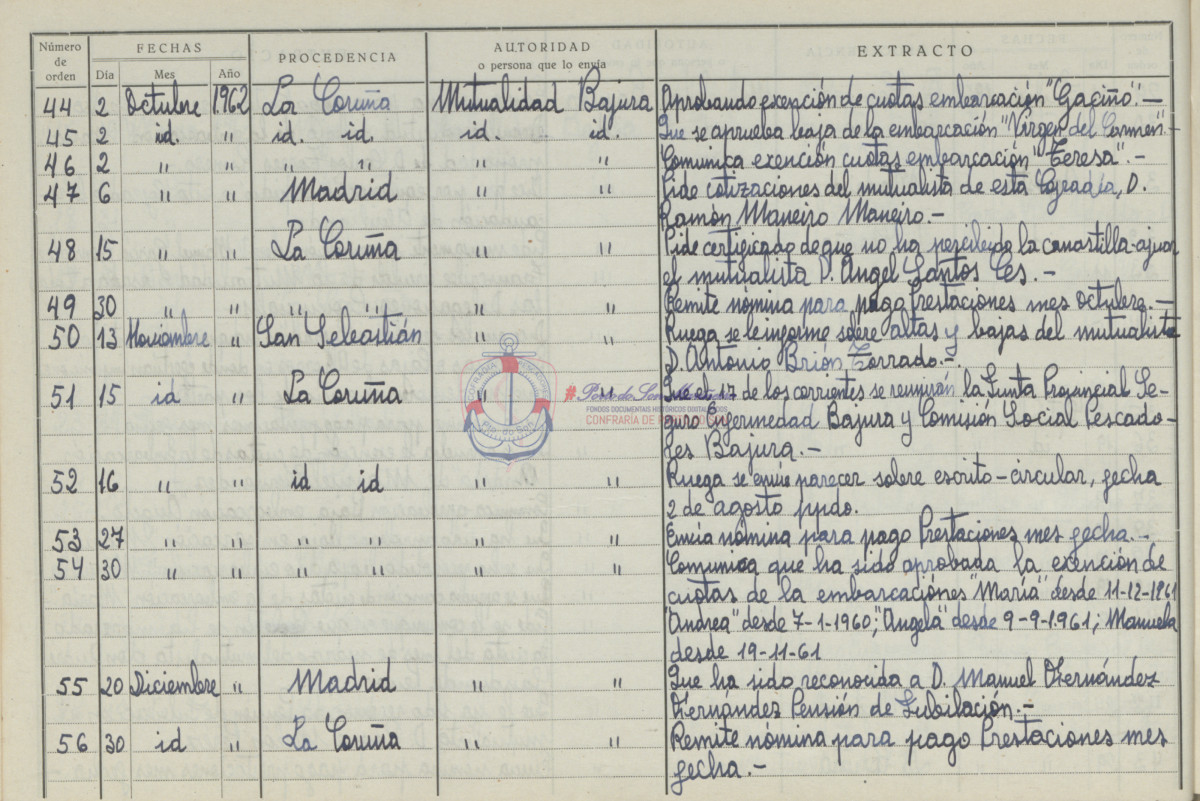 Número de orden FECHAS PROCEDENCIA AUTORIDAD o persona que lo envía EXTRACTO
Día Mes Año
44 2 Octubre 1.962 La Coruña Mutualidad Bajura Aprobando exención de cuotas embarcación "Gaciño".-
45 2 id. " id. id. id. id. Que se aprueba baja de la embarcación "Virgen del Carmen".-
46 2 " " " " " " Comunica exención cuotas embarcación "Teresa".-
47 6 " " Madrid " " Pide cotizaciones del mutualista de esta Cofradía, D.
Ramón Maneiro Maneiro.-
48 15 " " La Coruña " " Pide certificado de que no ha percibido la canastilla-ajuar
el mutualista D. Angel Santos Ces.-
49 30 " " " " " " Remite nómina para pago Prestaciones mes octubre.-
50 13 Noviembre " San Sebastián " " Ruega se le informe sobre altas y bajas del mutualista
D. Antonio Brión Torrado.-
51 15 id " La Coruña " " Que el 17 de los corrientes se reunirán la Junta Provincial Se-
guro Enfermedad Bajura y Comisión Social Pescado-
res Bajura.-
52 16 " " id id " " Ruega se envíe parecer sobre escrito-circular, fecha
2 de agosto ppdo.
53 27 " " " " " " Envía nómina para pago Prestaciones mes fecha.-
54 30 " " " " " " Comunica que ha sido aprobada la exención de
cuotas de la embarcaciónes "María" desde 11-12-1961
"Andrea" desde 7-1-1960; "Angela" desde 9-9-1.961; Manuela
desde 19-11-61
55 20 Diciembre " Madrid " " Que ha sido reconocida a D. Manuel Hernández
Hernandez Pensión de Jubilación.-
56 30 id " La Coruña " " Remite nómina para pago Prestaciones mes
fecha.-
COFRADIA PESCADORES
Pto. do Son
#Porto do Son
FONDOS DOCUMENTAIS HISTÓRICOS DIGITALIZADOS
CONFRARÍA DE